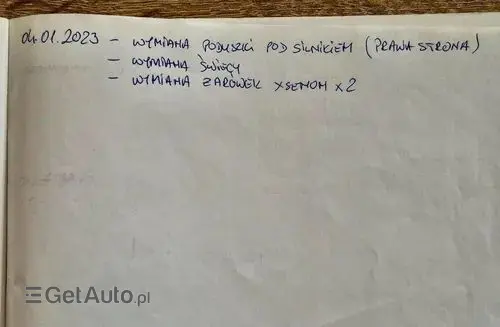 04.01.2023 - WYMIANA PODUSZKI POD SILNIKIEM (PRAWA STRONA)
- WYMIANA ŚWIECY
- WYMIANA ŻARÓWEK XSENON x2
GetAuto.pl